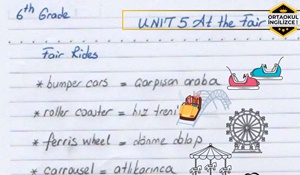 6th Grade
UNIT 5 At the Fair
ORTAOKUL
İNGİLİZCE!
Fair Rides
* bumper cars = çarpışan araba
* roller coaster = hız treni
* ferris wheel = dönme dolap
* carrousel = atlıkarınca